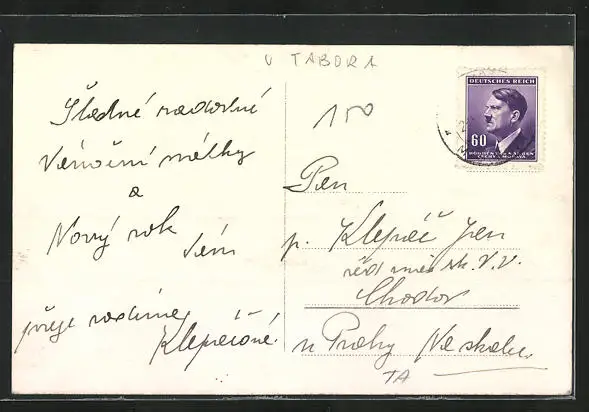 U TÁBORA
Šťastné radostné
Vánoční svátky
a
Nový rok
Vám
přeje rodina
Klepáčové
150
DEUTSCHES REICH
60
BÖHMEN UND MÄHREN
ČECHY A MORAVA
Pan
p. Klepáč Jan
řed. šk. v.v.
Chodov
u Prahy Na skalce
TA